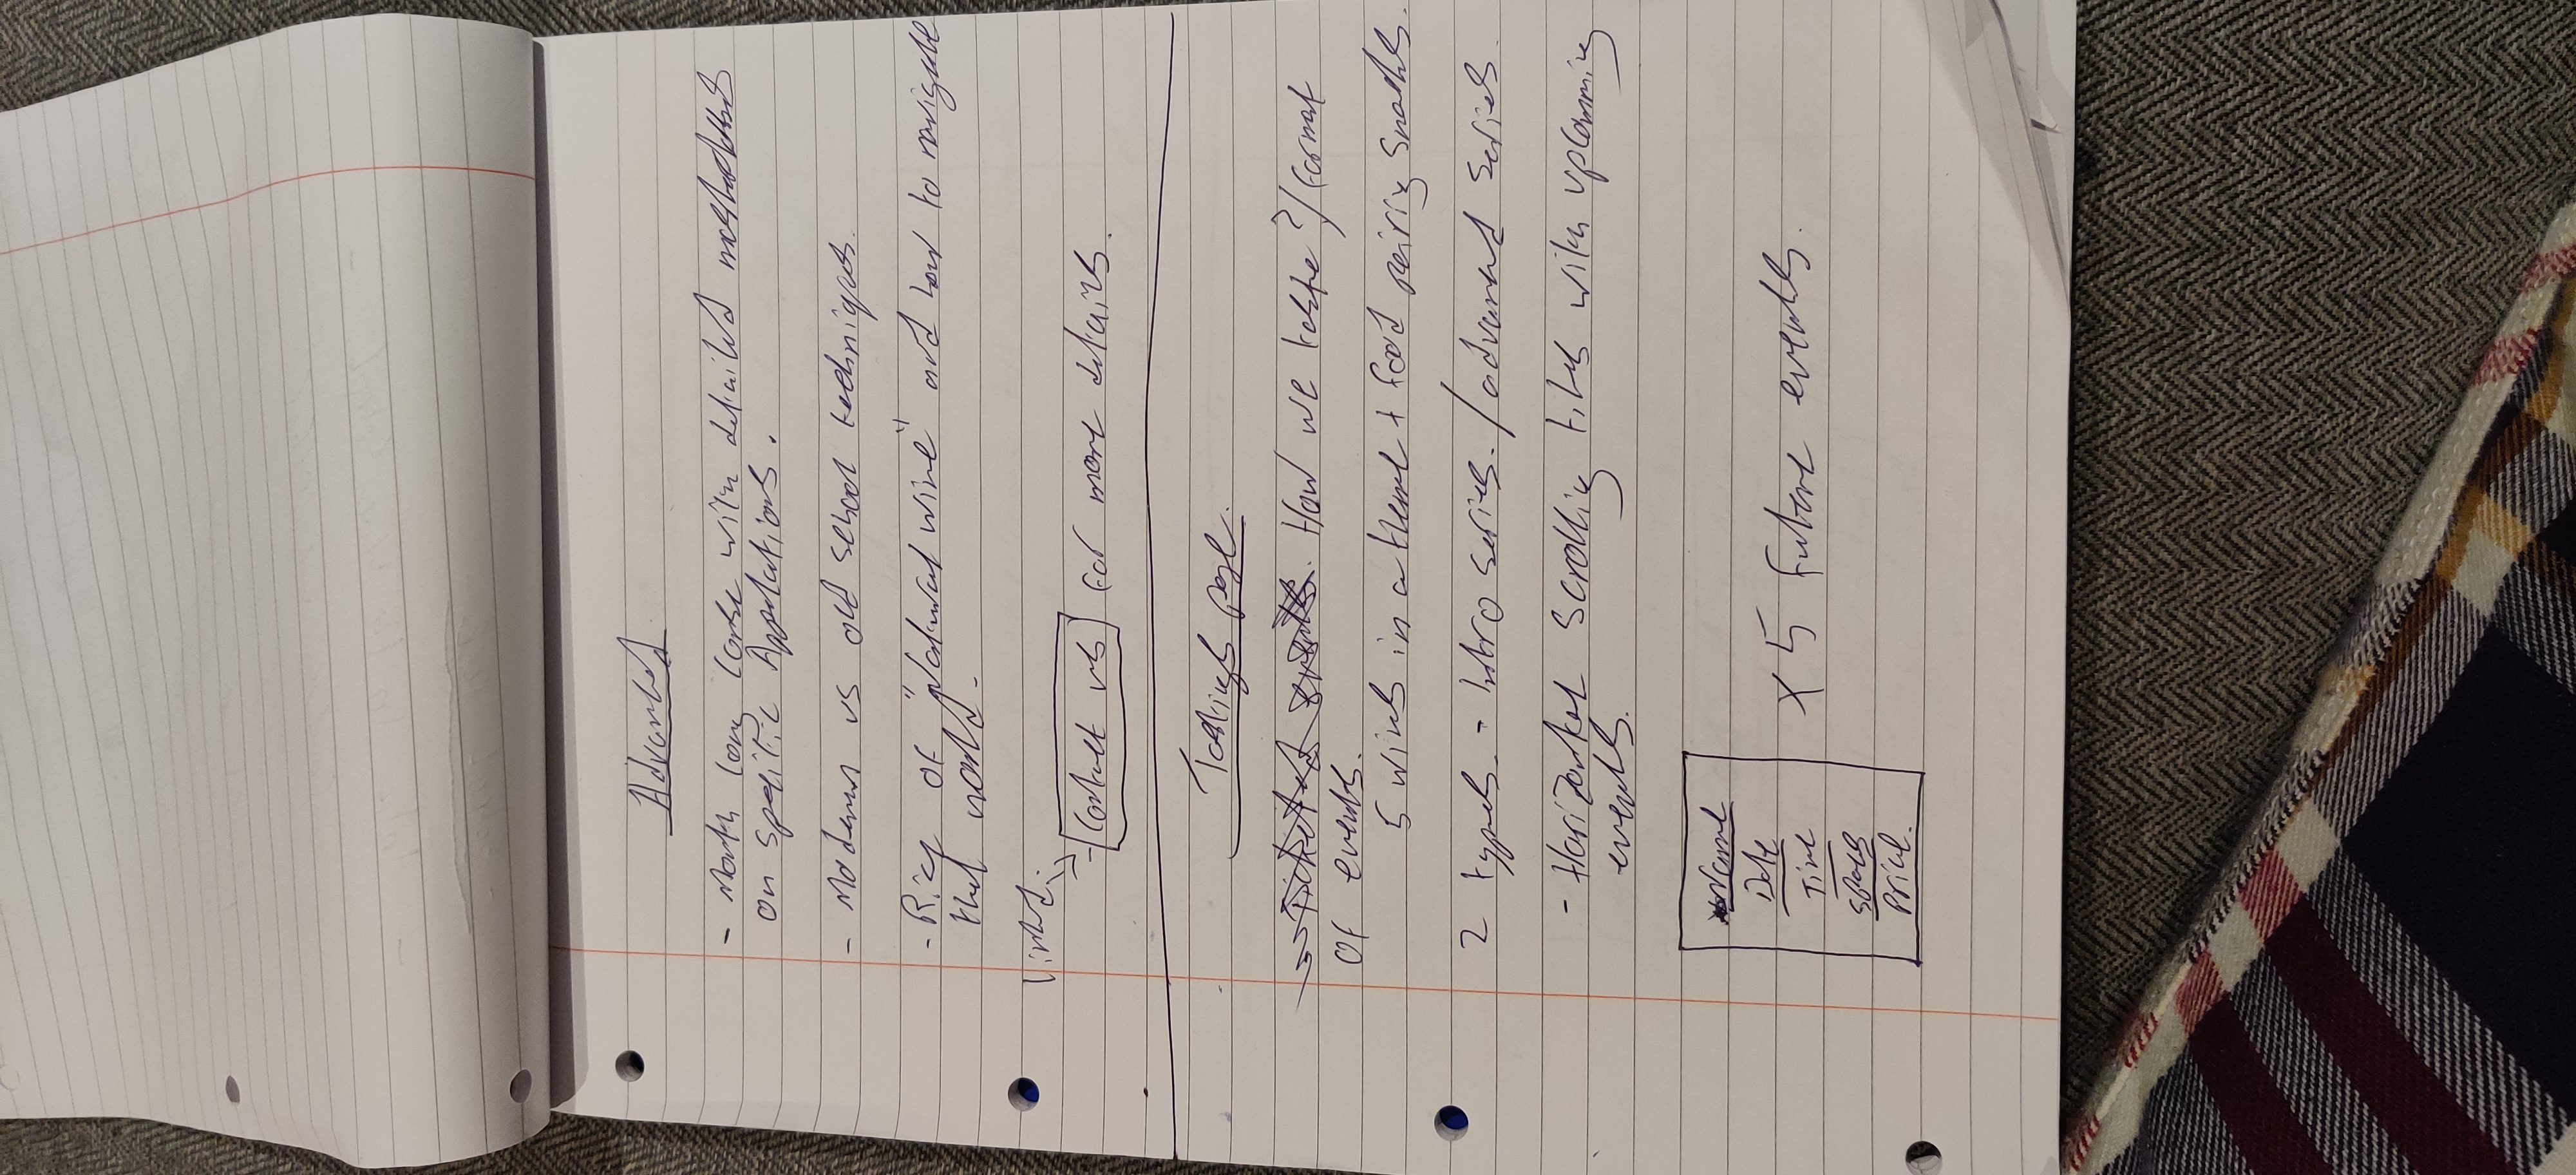 Advanced
- Month long course with detailed masterclasses
on specific Appelations.
- Modern vs old school techniques.
- Rise of "Natural wine" and how to navigate
that world.
Linked
- Contact us for more details.
Tastings page.
Ticketed events. How we taste?/format
of events.
5 wines in a theme + food pairing snacks.
2 types. - Intro series. / advanced series.
- Horizontal scrolling tiles with upcomming
events.
Name
Date
Time
Spaces
Price.
x 5 future events.